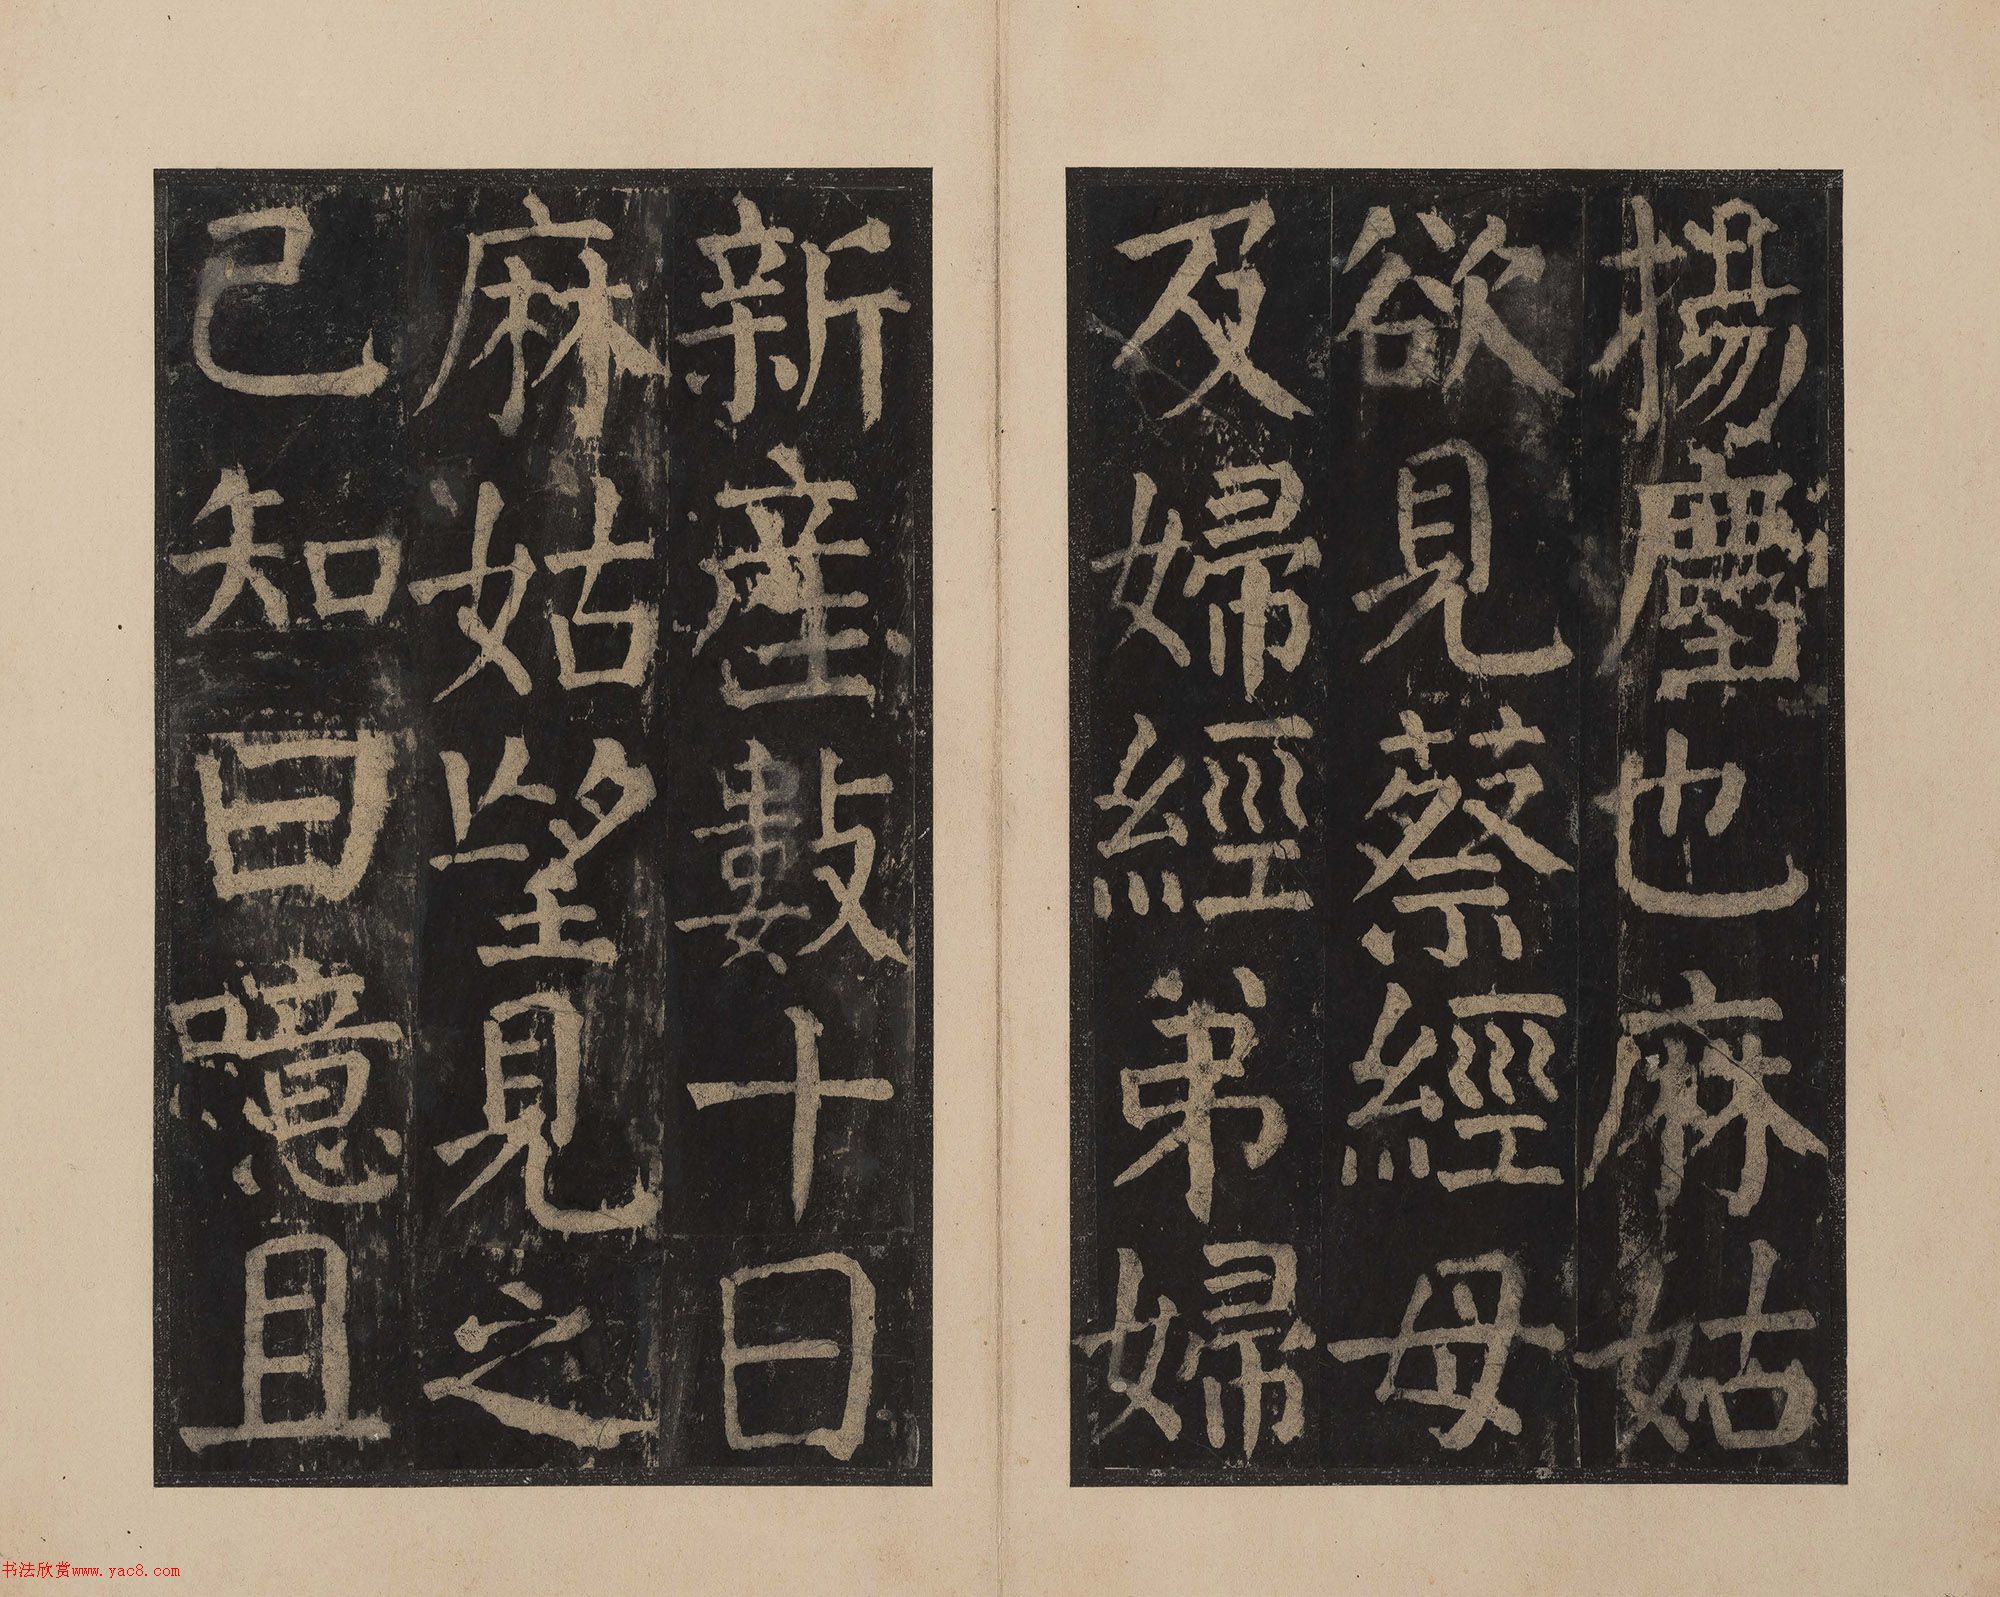 揚塵也麻姑
欲見蔡經母
及婦經弟婦
新產數十日
麻姑望見之
已知曰噫且
书法欣赏www.yac8.com